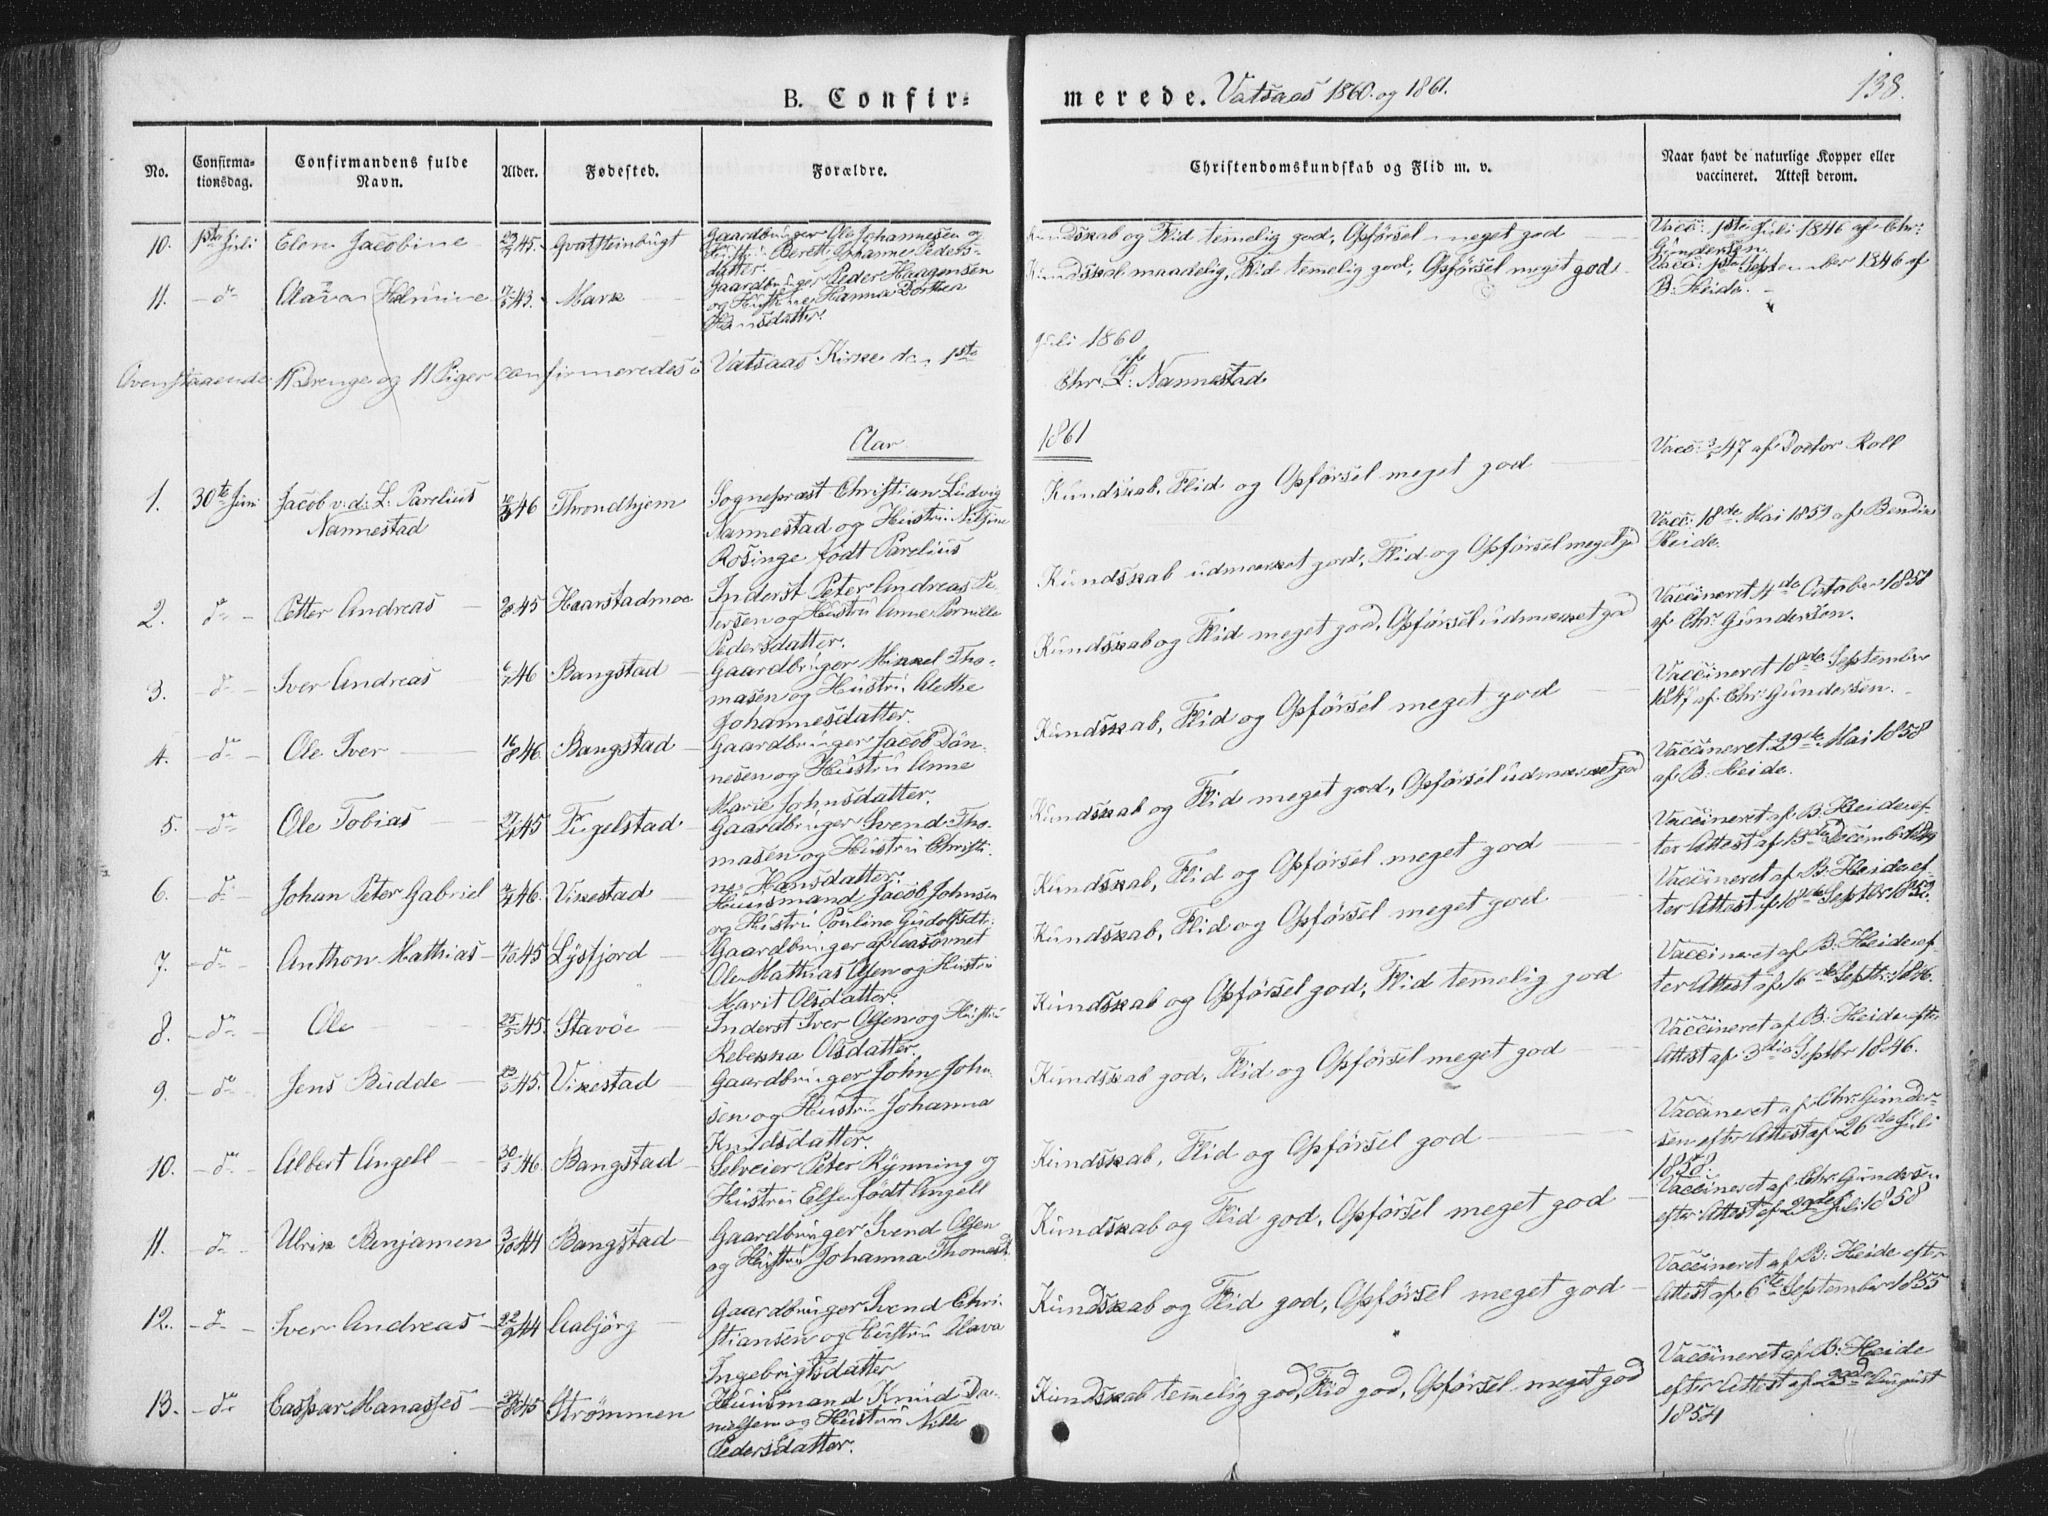 B. Confirmerede. Vatsaas 1860. og 1861.
138.
No. Confirmationsdag. Confirmandens fulde Navn. Alder. Fødested. Forældre. Christendomskundskab og Flid m. v. Naar havt de naturlige Kopper eller vaccineret. Attest derom.
10. 1ste Juli Elen Jacobine 45. Qvatsteinbugt
Gaardbruger Ole Johannesen og
Hustru Berett Johanne Peders-
datter.
Kundskab og Flid temelig god, Opførsel meget god
Vacc: 1ste Juli 1846 af Chr:
Gundersen.
11. - do 43. Mark
Gaardbruger Peder Haagensen
og Hustrue Hanna Dorthea
Hansdatter.
Kundskab maadelig, Flid temelig god, Opførsel meget god
Vacc: 1ste September 1846 af
B. Heide.
Ovenstaaende 11 Drenge og 11 Piger confirmeredes i Vatsaas Kirke den 1ste
Juli 1860
Chr. L: Nannestad
Aar 1861
1. 30te Juni Jacob v: d: L: Parelius
Nannestad
46 Throndhjem
Sognepræst Christian Ludvig
Nannestad og Hustru Nilsine
Rosinge født Parelius
Kundskab, Flid og Opførsel meget god
Vacc: 47 af Doctor Roll
2. do Petter Andreas 45 Haarstadmoe
Inderst Peter Andreas Pe-
tersen og Hustru Anne Pernille
Pedersdatter.
Kundskab udmærket god, Flid og Opførsel meget god
Vacc: 18de Mai 1859 af Bendix
Heide.
3. - do Iver Andreas 46 Bangstad
Gaardbruger Mikkel Tho-
masen og Hustru Alethe
Johannesdatter.
Kundskab og Flid meget god, Opførsel udmærket god
Vaccineret 4de October 1858
af Chr. Gundersen.
4. - do - Ole Iver 46. Bangstad
Gaardbruger Jacob Dön-
nesen og Hustru Anne
Marie Johnsdatter.
Kundskab, Flid og Opførsel meget god
Vaccineret 18de September
1847 af Chr. Gundersen.
5. - do - Ole Tobias 45 Fugelstad
Gaardbruger Svend Tho-
masen og Hustru Christi-
ne Hansdatter.
Kundskab og Flid meget god, Opførsel udmærket god
Vaccineret 29de Mai 1858
af B: Heide.
6. - do - Johan Peter Gabriel 46. Vikestad
Huusmand Jacob Johnsen
og Hustru Pouline Gudolfsdt:
Kundskab, Flid og Opførsel meget god
Vaccineret af B. Heide ef-
ter Attest af 13de December 1849
7. - do - Anthon Mathias 45 Lysfjord
Gaardbruger af Aasövnet
Ole Mathias Olsen og Hustru
Marit Olsdatter.
Kundskab, Flid og Opførsel meget god
Vaccineret af B: Heide ef-
ter Attest af 18de Septbr 1852.
8. - do - Ole 25 45. Stavöe
Inderst Iver Olsen og Hustru
Rebekka Olsdatter
Kundskab og Opførsel god, Flid temelig god
Vaccineret af B. Heide ef-
ter Attest af 16de Septbr: 1846.
9. - do - Jens Budde 45. Vikestad
Gaardbruger John John-
sen og Hustru Johanna
Knudsdatter.
Kundskab god, Flid og Opførsel meget god
Vaccineret af B: Heide efter
Attest af 3die Septbr 1846.
10. - do - Albert Angell 30 46. Bangstad
Selveier Peter Rynning og
Hustru Else født Angell
Kundskab, Flid og Opførsel god
Vaccineret af Chr. Gunder-
sen efter Attest af 26de Juli
1858.
11. - do - Ulrik Benjamen 44 Bangstad
Gaardbruger Svend Olsen
og Hustru Johanna Thomasdt.
Kundskab og Flid god, Opførsel meget god
Vaccineret af Chr. Gunders:
efter Attest af 29de Juli 1858
12. - do - Iver Andreas 22 44 Aabjörg
Gaardbruger Svend Chri-
stiansen og Hustru Olava
Ingebrigtsdatter
Kundskab og Flid god, Opførsel meget god
Vaccineret af B: Heide efter
Attest af 6te September 1855
13. - do - Caspar Manasses 45 Strömmen
Huusmand Knud Da-
nielsen og Hustru Nille
Pedersdatter.
Kundskab temelig god, Flid god, Opførsel meget god
Vaccineret af B: Heide
efter Attest af 23de August
1854